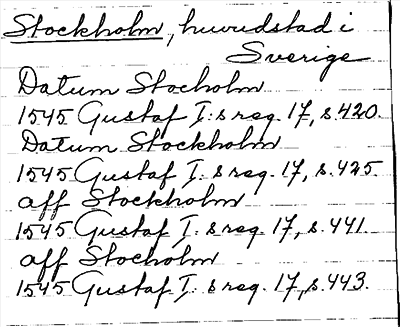 Stockholm, huvudstad i
Sverige
Datum Stocholm
1545 Gustaf I:s reg. 17, s. 420.
Datum Stockholm
1545 Gustaf I:s reg. 17, s. 425.
aff Stockholm
1545 Gustaf I:s reg. 17, s. 441.
aff Stocholm
1545 Gustaf I:s reg. 17, s. 443.